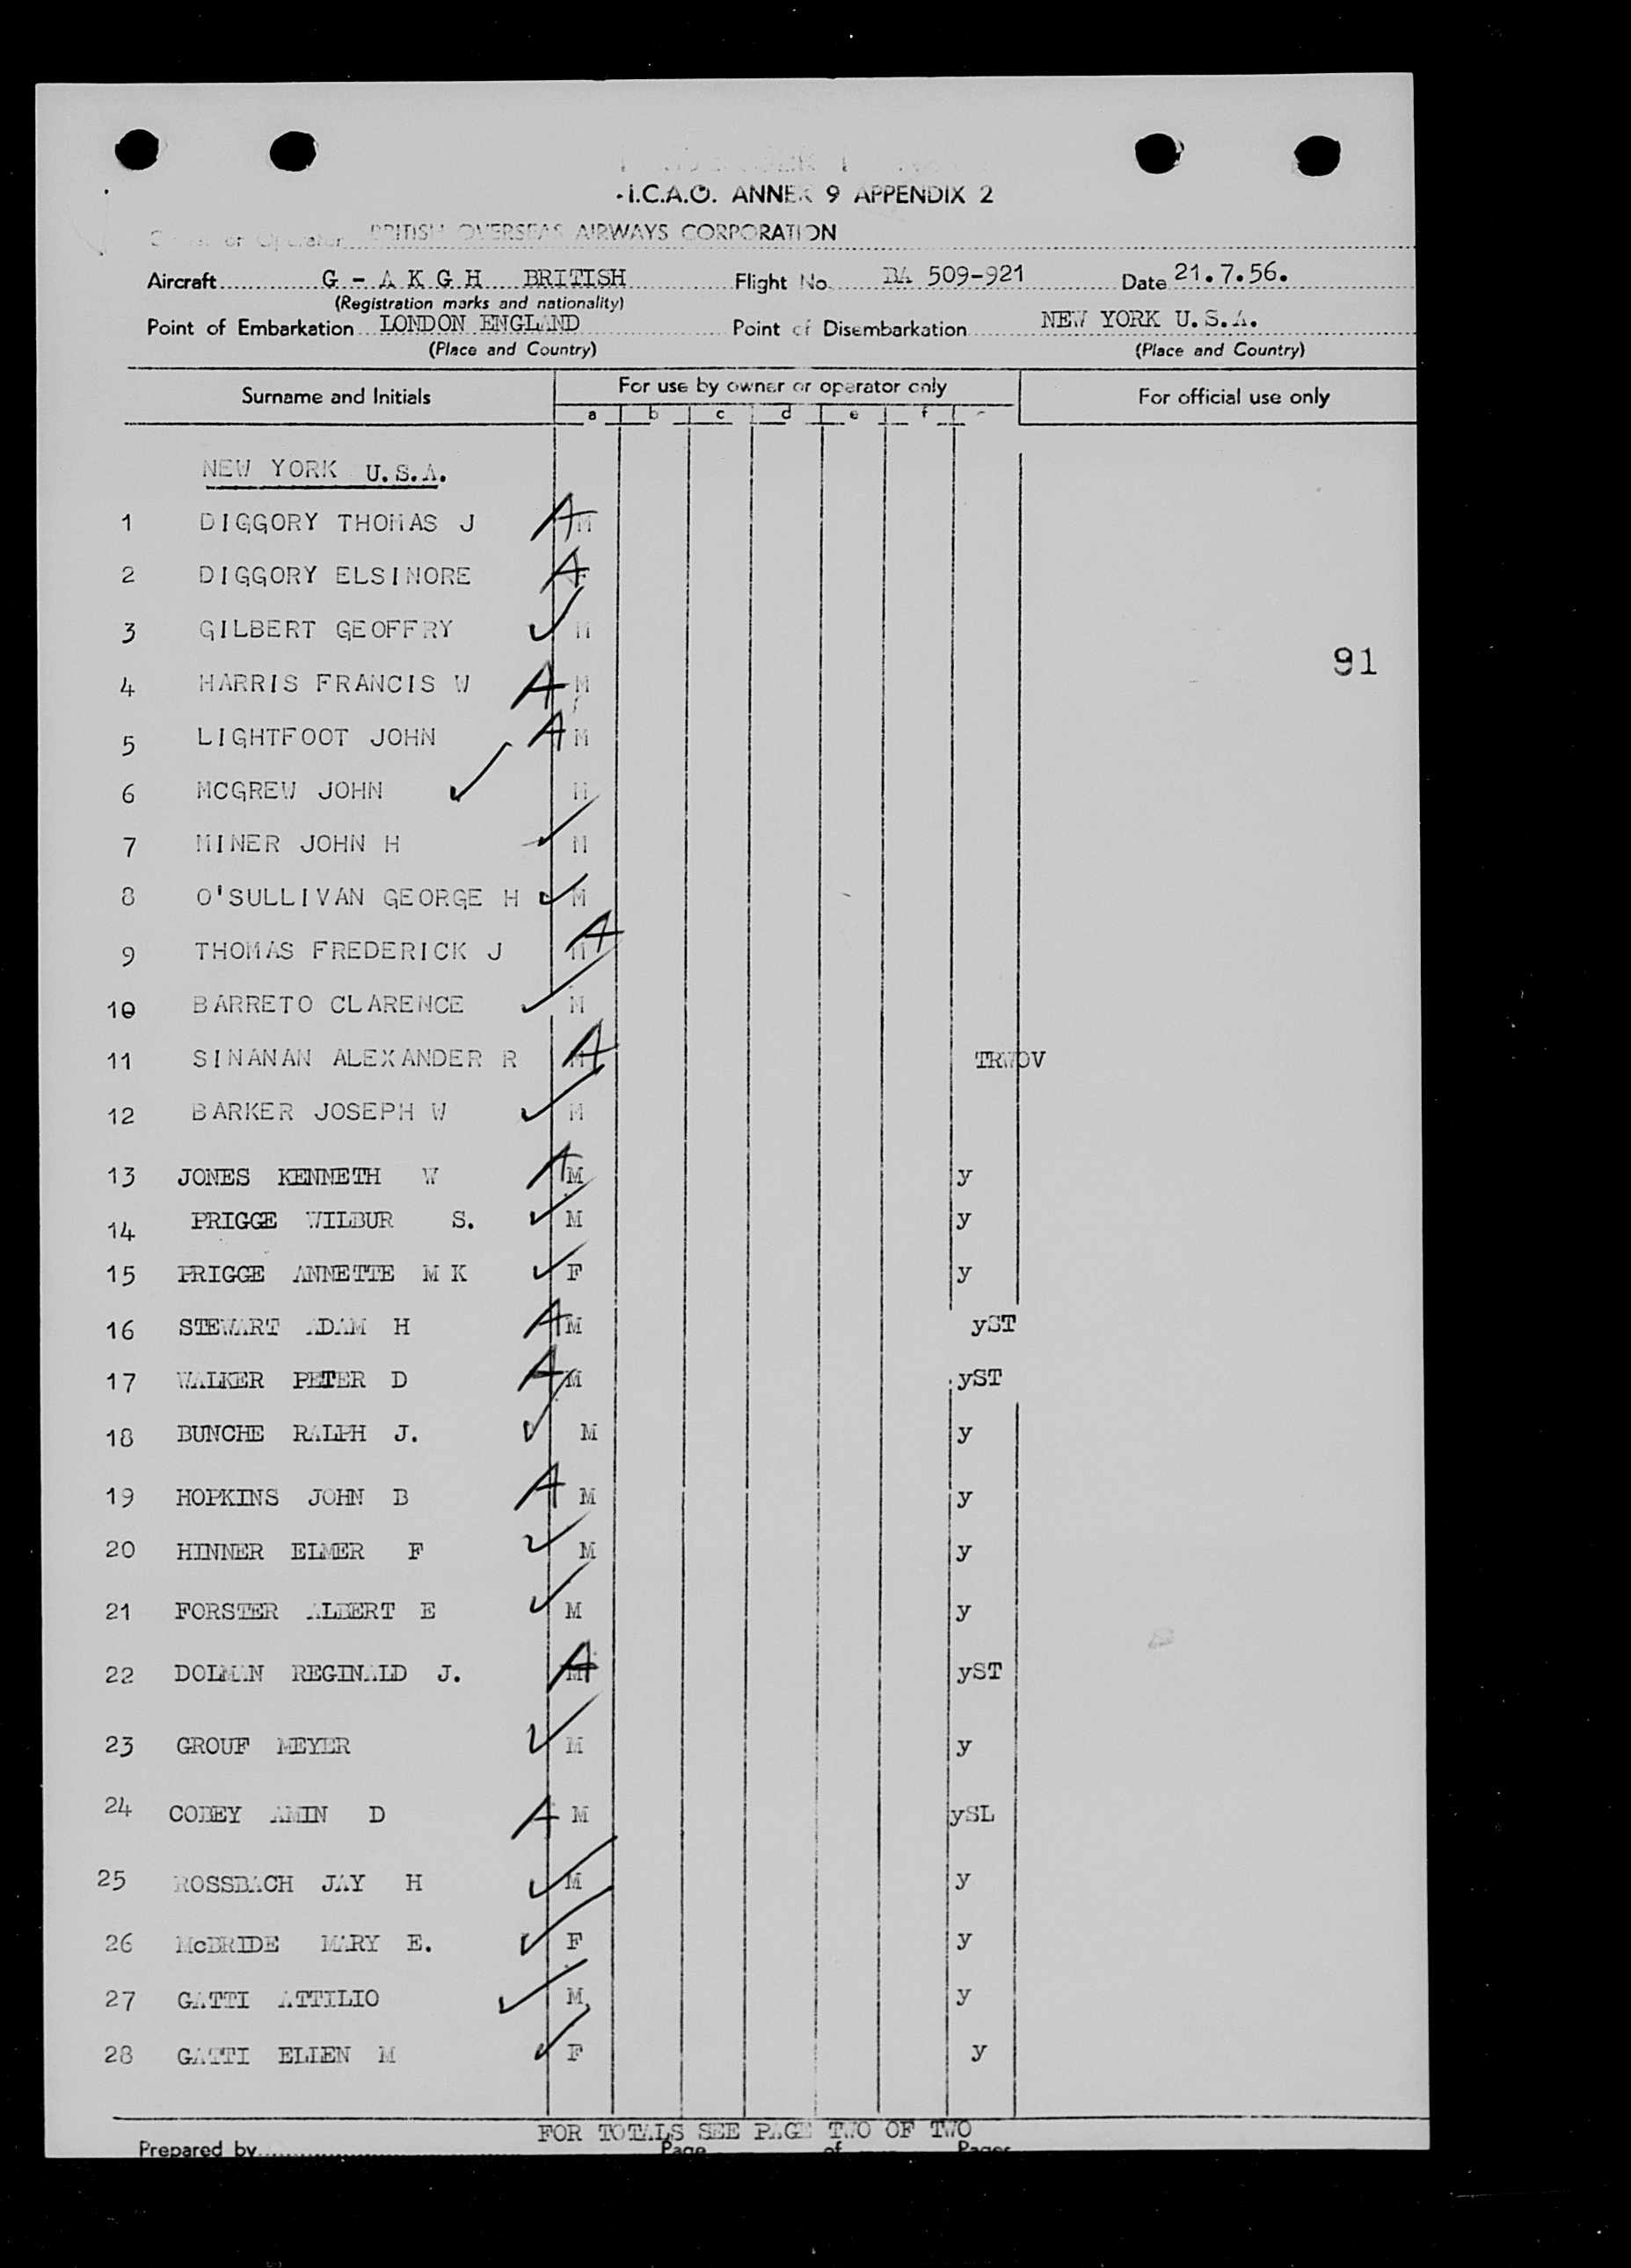 I.C.A.O. ANNEX 9 APPENDIX 2
Owner or Operator BRITISH OVERSEAS AIRWAYS CORPORATION
Aircraft G - A K G H BRITISH Flight No. BA 509-921 Date 21.7.56.
(Registration marks and nationality)
Point of Embarkation LONDON ENGLAND Point of Disembarkation NEW YORK U.S.A.
(Place and Country) (Place and Country)
Surname and Initials For use by owner or operator only For official use only
a b c d e f
NEW YORK U.S.A.
1 DIGGORY THOMAS J A M
2 DIGGORY ELSINORE A F
3 GILBERT GEOFFRY ✓ M
91
4 HARRIS FRANCIS W A M
5 LIGHTFOOT JOHN A M
6 MCGREW JOHN ✓ M
7 MINER JOHN H ✓ M
8 O'SULLIVAN GEORGE H ✓ M
9 THOMAS FREDERICK J A M
10 BARRETO CLARENCE ✓ M
11 SINANAN ALEXANDER R A M TRWOV
12 BARKER JOSEPH W ✓ M
13 JONES KENNETH W A M y
14 PRIGGE WILBUR S. ✓ M y
15 PRIGGE ANNETTE M K ✓ F y
16 STEWART ADAM H A M yST
17 WALKER PETER D A M yST
18 BUNCHE RALPH J. ✓ M y
19 HOPKINS JOHN B A M y
20 HINNER ELMER F ✓ M y
21 FORSTER ALBERT E ✓ M y
22 DOLMAN REGINALD J. A M yST
23 GROUF MEYER ✓ M y
24 COBEY AMIN D A M ySL
25 ROSSBACH JAY H ✓ M y
26 McBRIDE MARY E. ✓ F y
27 GATTI ATTILIO ✓ M y
28 GATTI ELLEN M ✓ F y
FOR TOTALS SEE PAGE TWO OF TWO
Prepared by Page of Pages